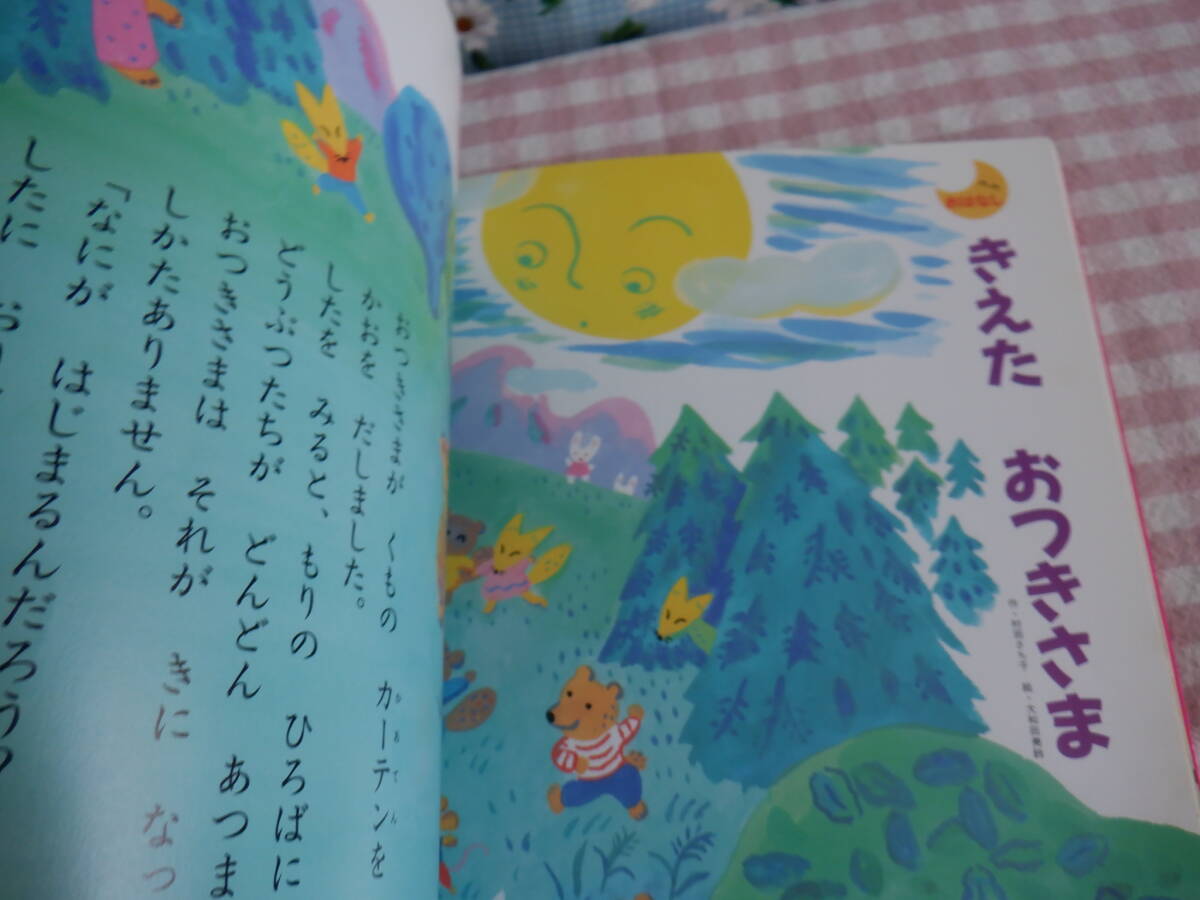 おはなし
きえた おつきさま
作・村田さち子 絵・大和田美鈴
おつきさまが くもの カーテンを
かあてん
かおを だしました。
したを みると、もりの ひろばに
どうぶつたちが どんどん あつま
おつきさまは それが きに なっ
しかたありません。
「なにが はじまるんだろう？
したに